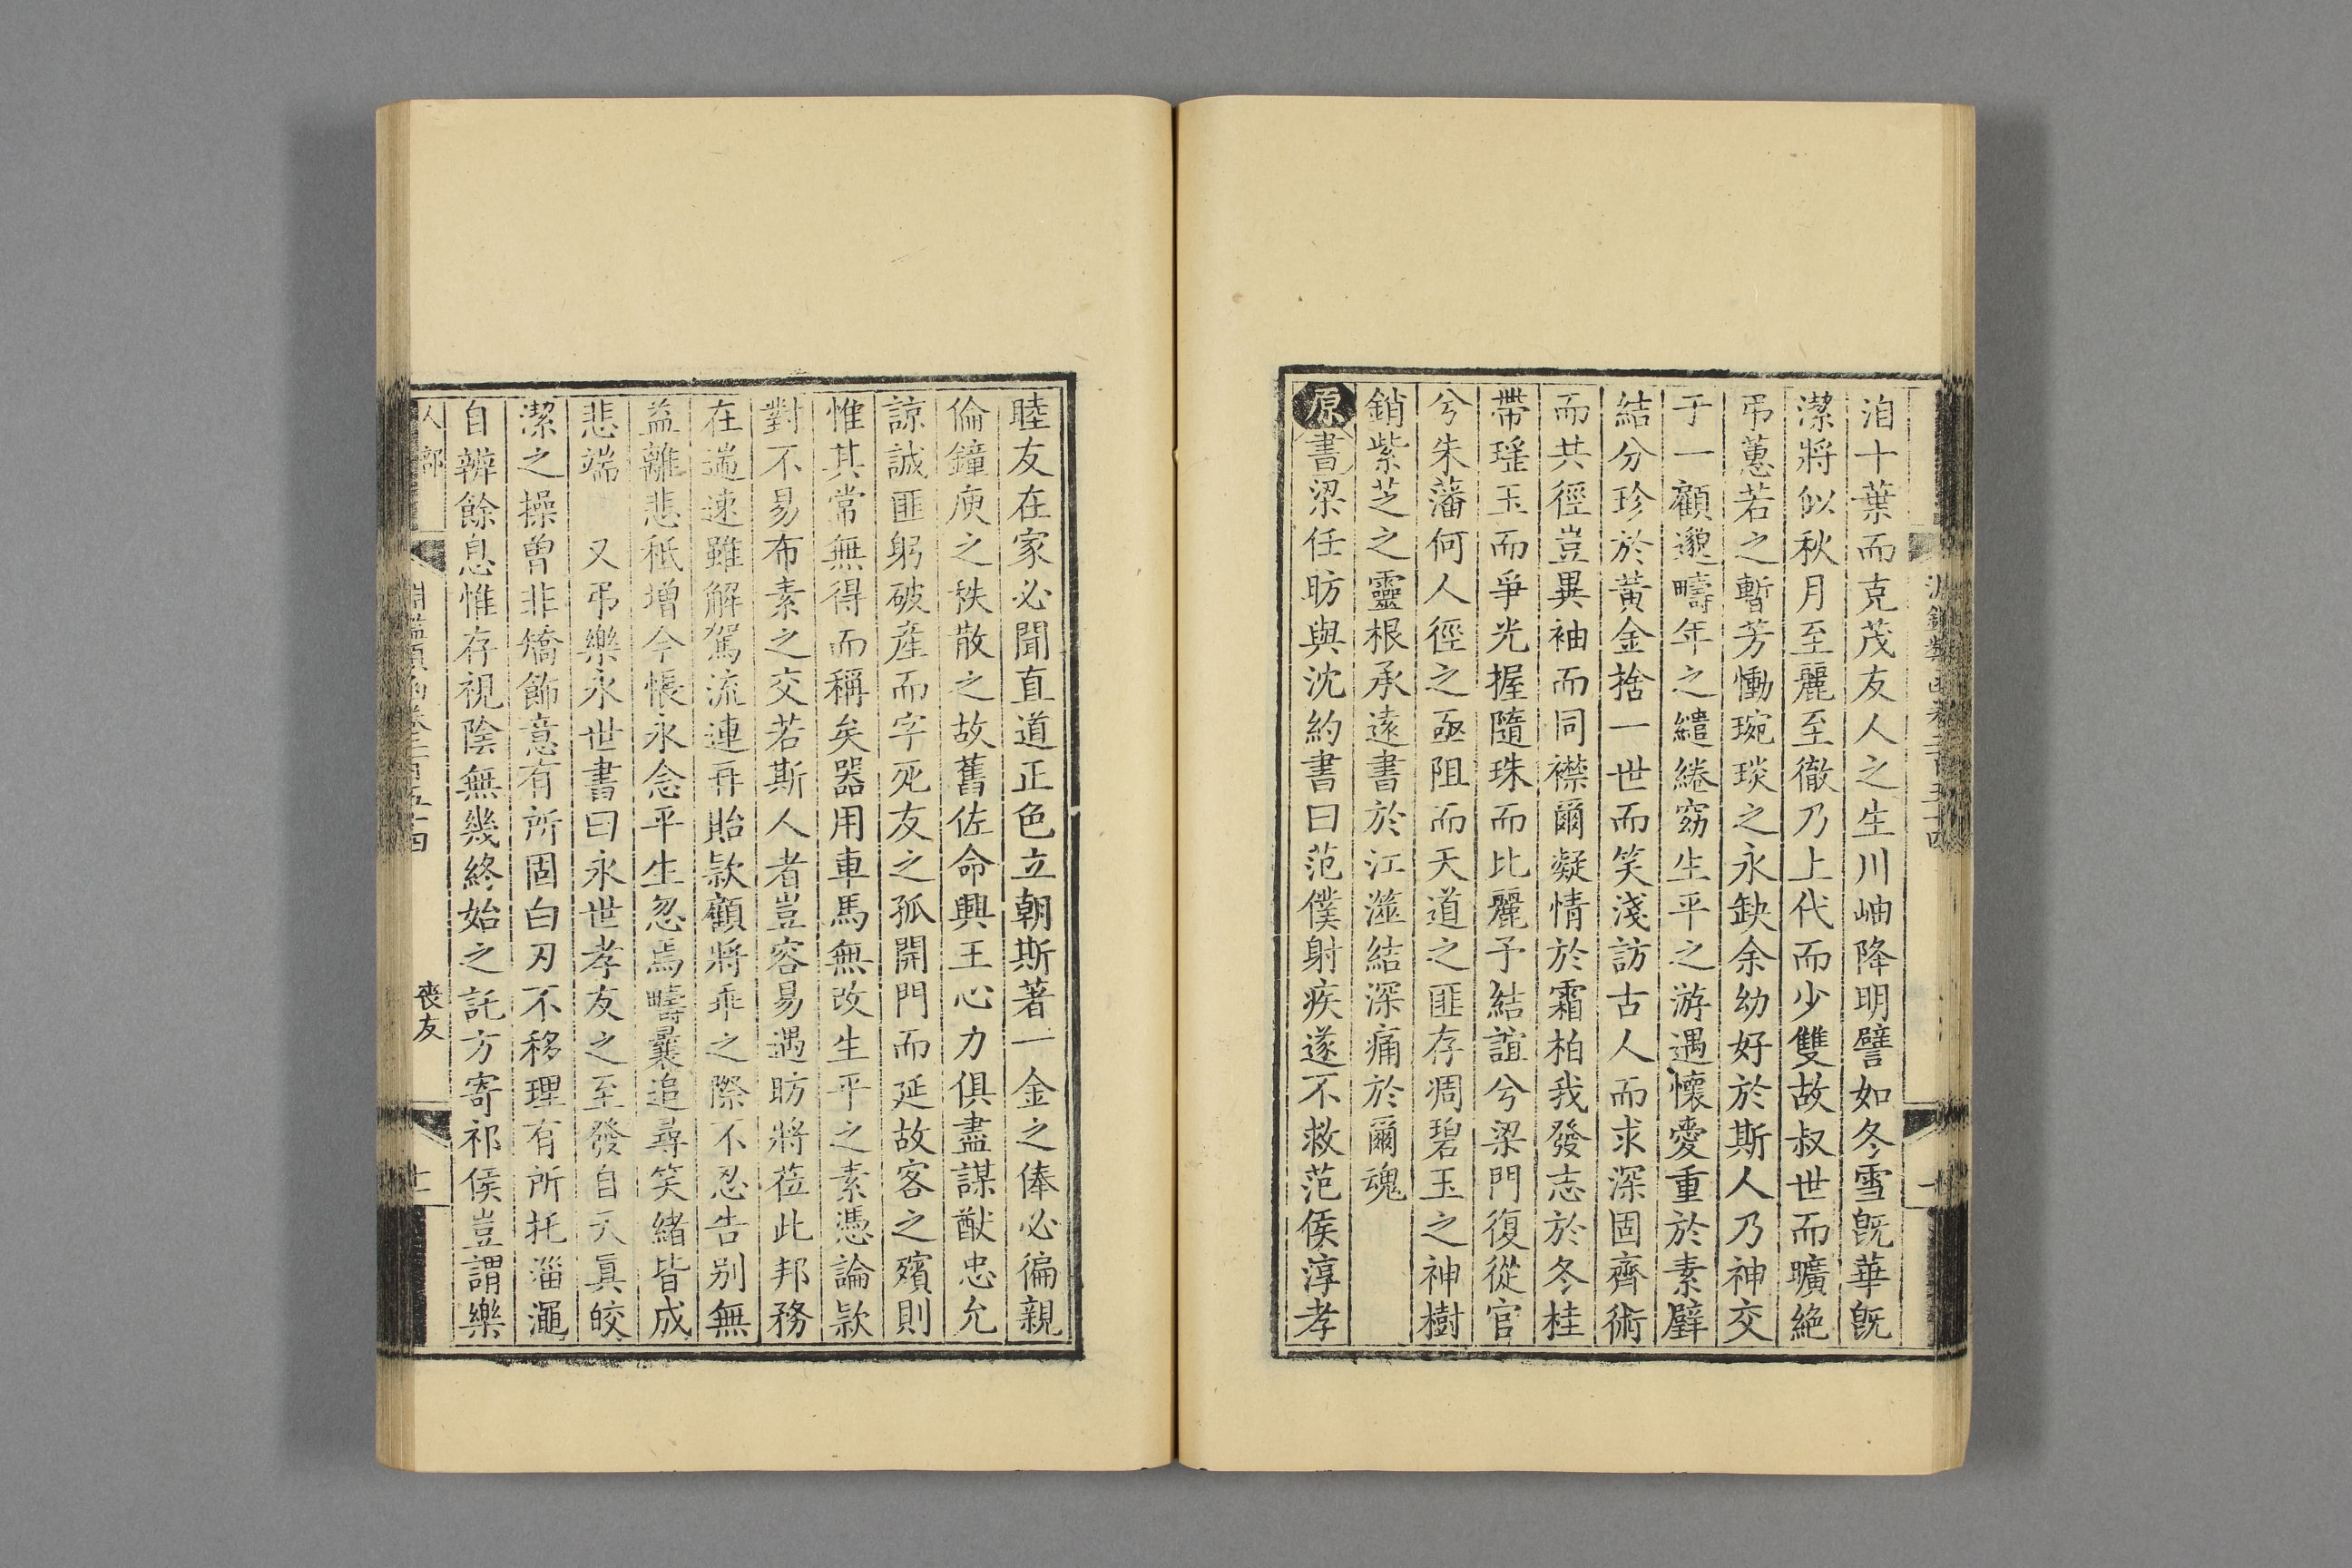 洎十葉而克茂友人之生川岫降明譬如冬雪旣華旣
潔將似秋月至麗至徹乃上代而少雙故叔世而曠絶
弔蕙若之暫芳慟琬琰之永缺余幼好於斯人乃神交
于一顧邈疇年之繾綣窈生平之游遇懷愛重於素璧
結分珍於黃金捨一世而笑淺訪古人而求深固齊術
而共徑豈異袖而同襟爾凝情於霜柏我發志於冬桂
帶瑤玉而爭光握隨珠而比麗予結誼兮梁門復從官
兮朱藩何人徑之亟阻而天道之匪存凋碧玉之神樹
銷紫芝之靈根承遠書於江澨結深痛於爾魂
原書梁任昉與沈約書曰范僕射疾遂不救范侯淳孝
睦友在家必聞直道正色立朝斯著一金之俸必徧親
倫鐘庾之秩散之故舊佐命興王心力俱盡謀猷忠允
諒誠匪躬破產而字死友之孤開門而延故客之殯則
惟其常無得而稱矣器用車馬無改生平之素憑論款
對不易布素之交若斯人者豈容易遇昉將莅此邦務
在遄速雖解駕流連再貽款顧將乖之際不忍告別無
益離悲秖增今悵永念平生忽焉疇曩追尋笑緒皆成
悲端　又弔樂永世書曰永世孝友之至發自天眞皎
潔之操曾非矯飾意有所固白刃不移理有所托淄澠
自辨餘息惟存視陰無幾終始之託方寄祁侯豈謂樂
人部
喪友